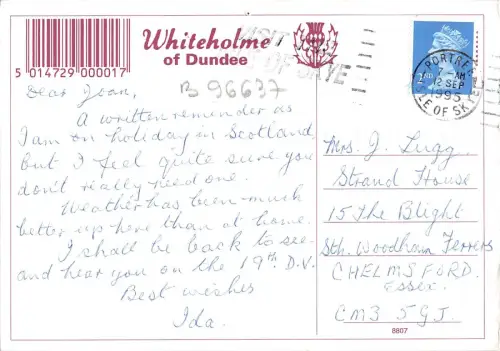 5 014729 000017
Whiteholme
of Dundee
VISIT
OF SKYE
PORTREE
7 - AM
12 SEP
1995
ISLE OF SKYE
2ND
B 96637
Dear Joan,
A written reminder as
I am on holiday in Scotland
but I feel quite sure you
don't really need one.
Weather has been much
better up here than at home.
I shall be back to see
and hear you on the 19th D.V.
Best wishes
Ida.
Mrs. J. Lugg
Strand House
15 The Blight
Sth. Woodham Ferrers
CHELMSFORD.
Essex.
CM3 5GJ.
8807